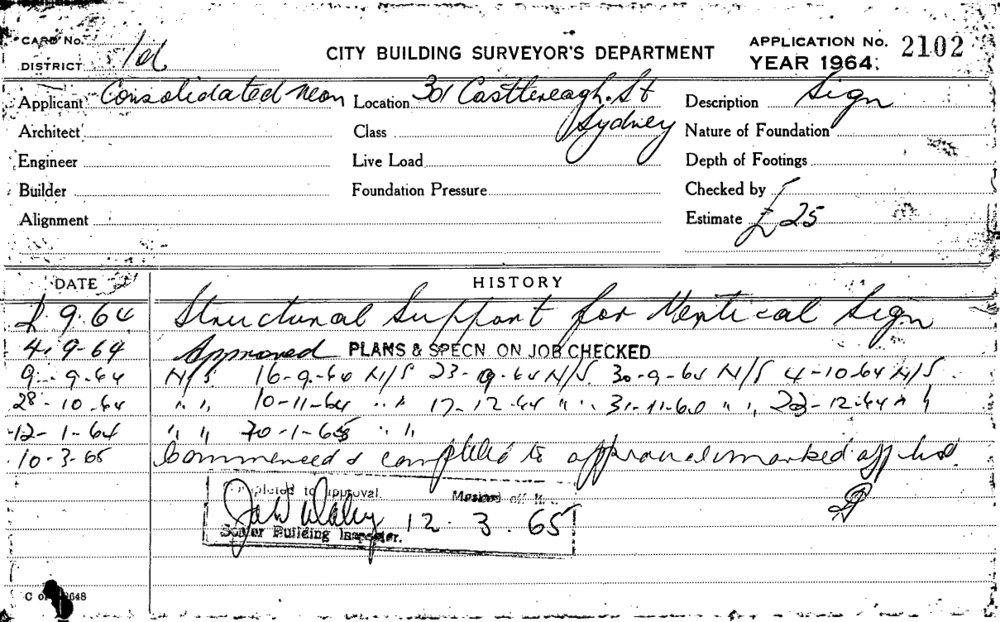 CARD No.
DISTRICT
CITY BUILDING SURVEYOR'S DEPARTMENT
APPLICATION No. 2102
YEAR 1964.
Applicant Consolidated Neon Location 301 Castlereagh. St Description Sign
Architect Class Sydney Nature of Foundation
Engineer Live Load Depth of Footings
Builder Foundation Pressure Checked by
Alignment Estimate £25
DATE HISTORY
9.64 Structural Support for Vertical Sign
4.9-64 Approved PLANS & SPECN. ON JOB CHECKED
9.-9.64 N/S 16-9-64 N/S 23-9-64 N/S 30-9-64 N/S 4-10-64 N/S
28-10-64 " " 10-11-64 " " 17-12-64 " " 31-11-60 " " 23-12-64 " "
12-1-64 " " 20-1-65 " "
10-3-65 Commenced & completed to approval marked off list
Completed to approval. Marked off
12.3.65
Senior Building Inspector.